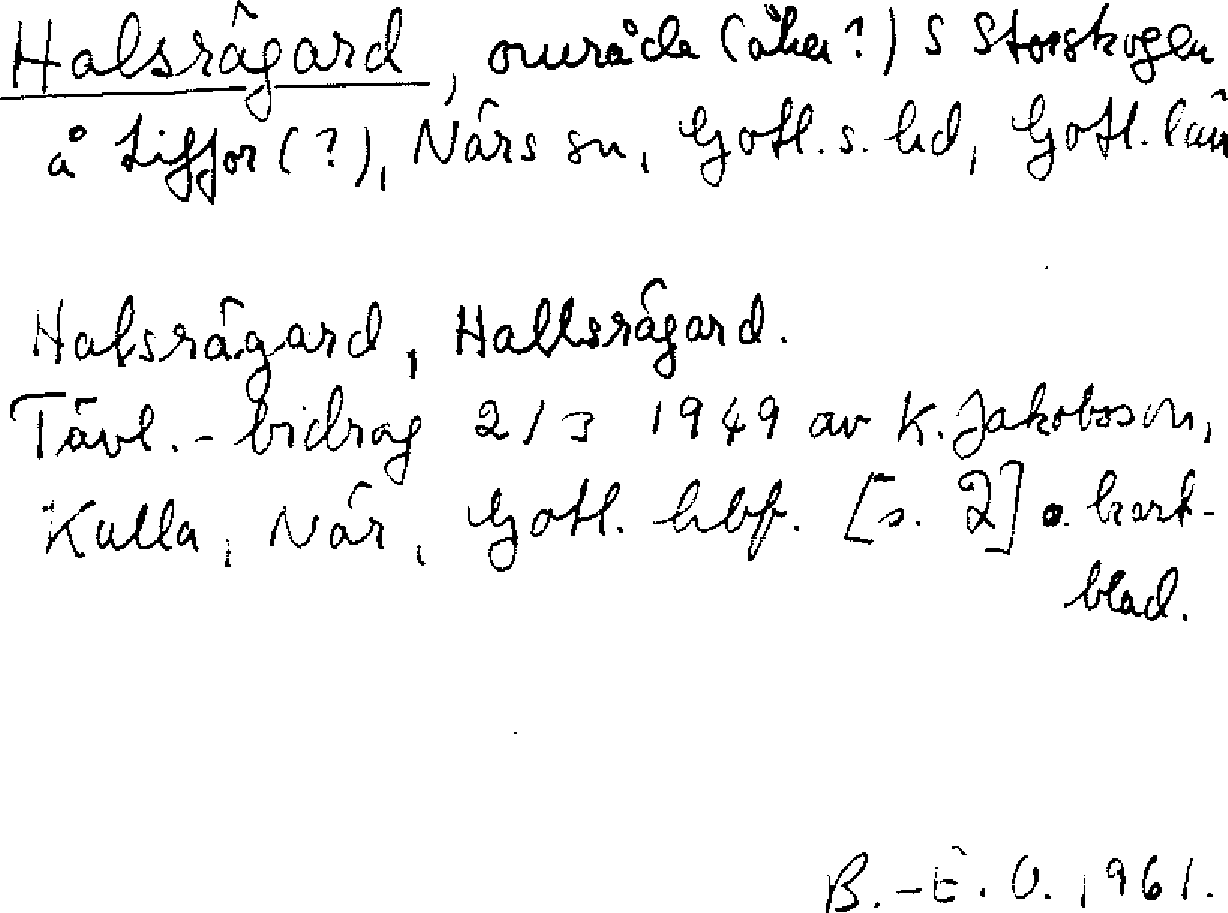 Halsrägard, område (åker?) S Storskogen
å Liffor (?), Närs sn, Gotl. s. hd, Gotl. län
Halsrägard, Hallsrägard.
Tävl.-bidrag 2/3 1949 av K. Jakobsson,
Kulla, När, Gotl. hbf. [s. 2] o. kart-
blad.
B.-E. O. 1961.